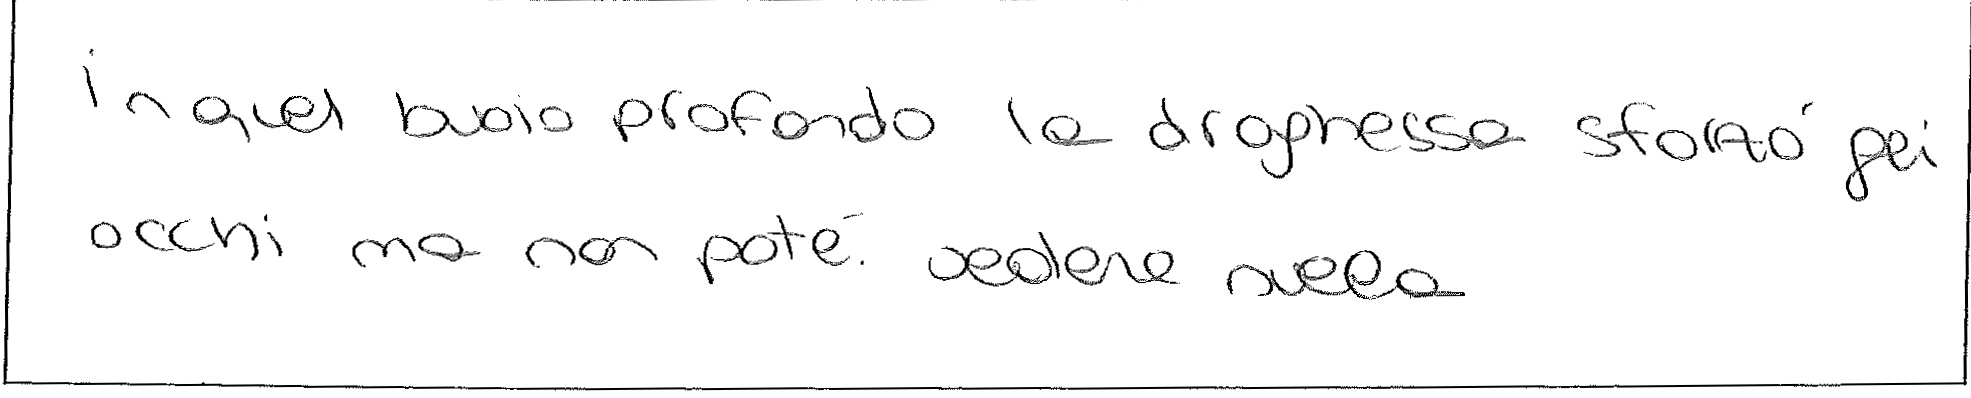 in quel buoio profondo la draghessa sforzó gei
occhi ma non poté. vedere nulla